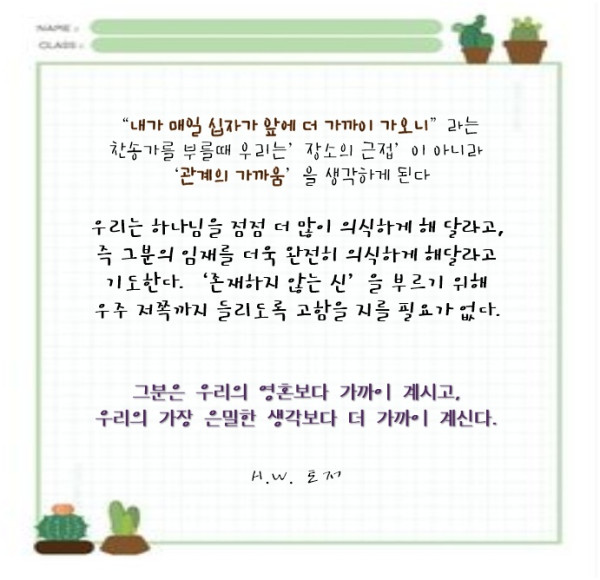 NAME :
CLASS :
“내가 매일 십자가 앞에 더 가까이 가오니” 라는
찬송가를 부를때 우리는’ 장소의 근접’ 이 아니라
‘관계의 가까움’ 을 생각하게 된다
우리는 하나님을 점점 더 많이 의식하게 해 달라고,
즉 그분의 임재를 더욱 완전히 의식하게 해달라고
기도한다. ‘존재하지 않는 신’ 을 부르기 위해
우주 저쪽까지 들리도록 고함을 지를 필요가 없다.
그분은 우리의 영혼보다 가까이 계시고,
우리의 가장 은밀한 생각보다 더 가까이 계신다.
H.W. 토저